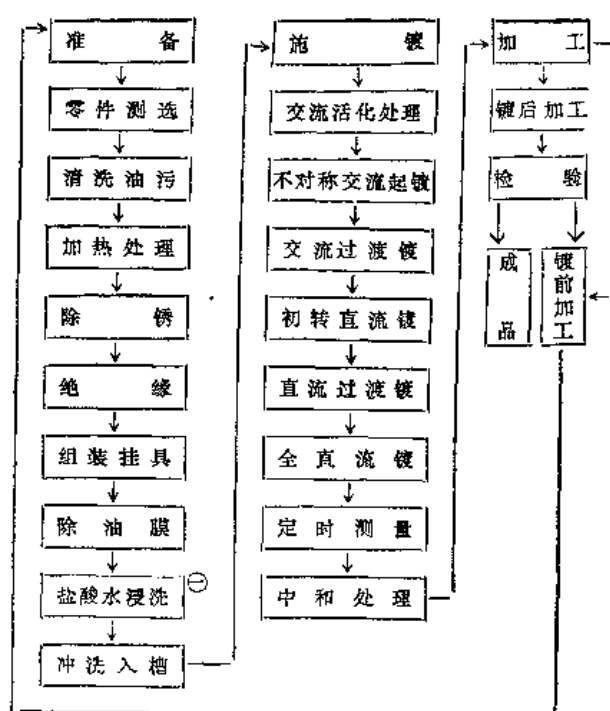 准备
零件测选
清洗油污
加热处理
除锈
绝缘
组装挂具
除油膜
盐酸水浸洗①
冲洗入槽
施镀
交流活化处理
不对称交流起镀
交流过渡镀
初转直流镀
直流过渡镀
全直流镀
定时测量
中和处理
加工
镀后加工
检验
成品
镀前加工